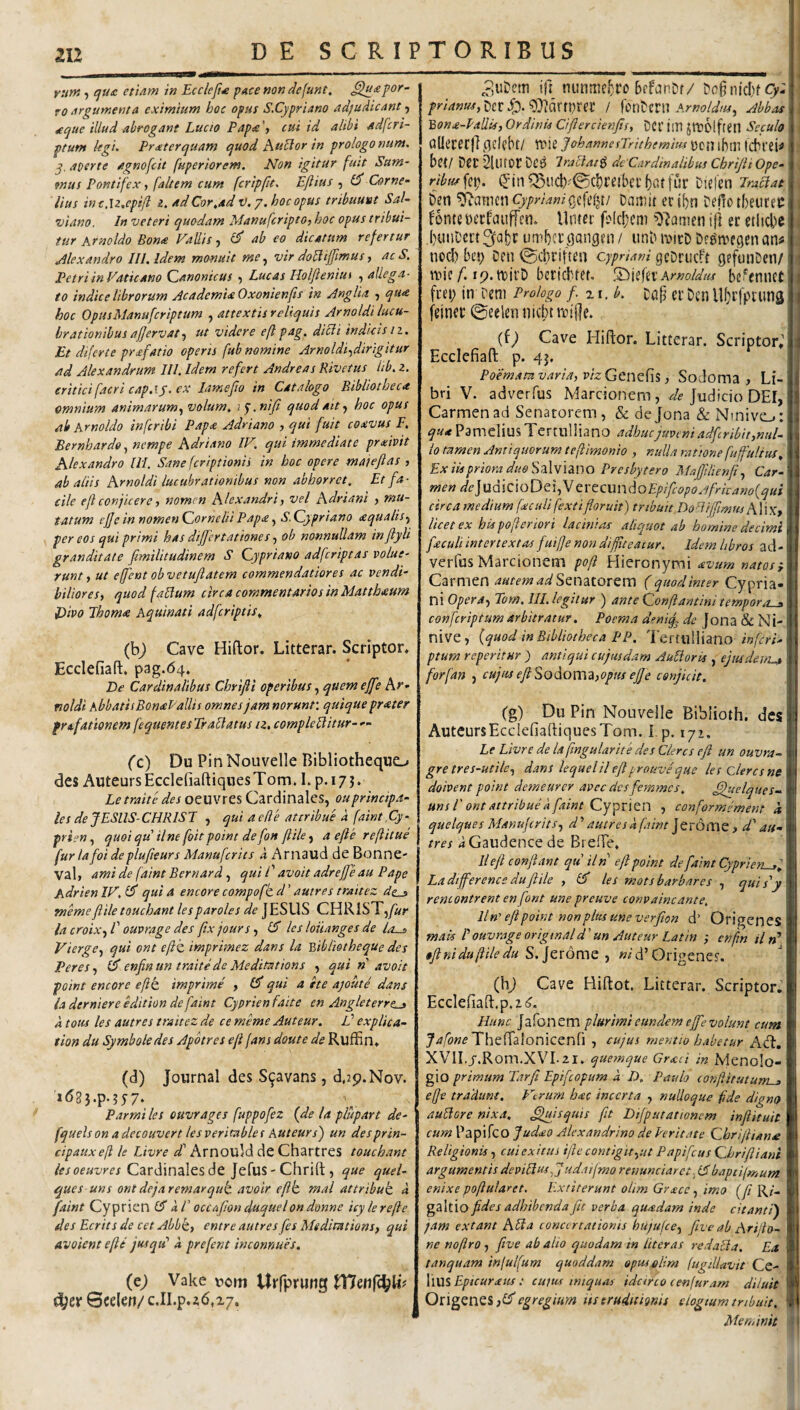 212 DE SCRIPTORIBUS
rum, quæ etiam in Ecclesiæ pace non desunt. Quæpor-
ro argumenta eximium hoc opus S.Cypriano adjudicant,
æque illud abrogant Lucio Papæ, cui id alibi adscri-
ptum legi. Præterquam quod Auctor in prologo num.
3. aperte agnoscit superiorem. Non igitur fuit Sum-
mus Pontifex, saltem cum scripsit. Estius, & Corne-
lius in c.12.epist 2. ad Cor. ad v. 7. hoc opus tribuunt Sal-
viano. In veteri quodam Manuscripto, hoc opus tribui-
tur Arnoldo Bonæ Vallis, & ab eo dicatum refertur
Alexandro III. Idem monuit me, vir doctissimus, ac S.
Petri in Vaticano Canonicus, Lucas Holstenius, allega-
to indice librorum Academiæ Oxoniensis in Anglia, quæ
hoc Opus Manuscriptum, attextis reliquis Arnoldi lucu-
brationibus asservat, ut videre est pag. dicti indicis 12.
Et diserte præfatio operis sub nomine Arnoldi, dirigitur
ad Alexandrum III. Idem refert Andreas Rivetus lib. 2.
critici sacri cap.15. ex Iamesio in Catalogo Bibliothecæ
omnium animarum, volum. 15. nisi quod ait, hoc opus
ab Arnoldo inscribi Papæ Adriano, qui fuit coævus F.
Bernhardo, nempe Adriano IV. qui immediate præivit
Alexandro III. Sane scriptionis in hoc opere majestas,
ab aliis Arnoldi lucubrationibus non abhorret. Et fa-
cile est conjicere, nomen Alexandri, vel Adriani, mu-
tatum esse in nomen Cornelii Papæ, S. Cypriano æqualis,
per eos qui primi has dissertationes, ob nonnullam in styli
granditate similitudinem S Cypriano adscriptas volue-
runt, ut essent ob vetustatem commendatiores ac vendi-
biliores, quod factum circa commentarios in Matthæum
Divo Thomæ Aquinati adscriptis.
(b) Cave Histor. Litterar. Scriptor.
Ecclesiast. pag.64.
De Cardinalibus Christi operibus, quem esse Ar-
noldi Abbatis Bonæ Vallis omnes jam norunt: quique præter
præfationem sequentes Tractatus 12. complectitur---
(c) Du Pin Nouvelle Bibliotheque
des Auteurs Ecclesiastiques Tom. I. p. 173.
Le traité des oeuvres Cardinales, ou principa-
les de JESUS-CHRIST, qui a esté attribué à saint Cy-
prien, quoi qu'il ne soit point de son stile, a esté restitué
sur la foi de plusieurs Manuscrits à Arnaud de Bonne-
val, ami de saint Bernard, qui l'avoit adressé au Pape
Adrien IV. & qui a encore composé d'autres traitez de
même stile touchant les paroles de JESUS CHRIST, sur
la croix, l'ouvrage des six jours, & les loüanges de la
Vierge, qui ont esté imprimez dans la Bibliotheque des
Peres, & enfin un traité de Meditations, qui n'avoit
point encore esté imprimé, & qui a ête ajoûté dans
la derniere édition de saint Cyprien faite en Angleterre
à tous les autres traitez de ce même Auteur. L'explica-
tion du Symbole des Apôtres est sans doute de Ruffin.
(d) Journal des Sçavans, d.29.Nov.
1683.p.357.
Parmi les ouvrages supposez (de la plûpart de-
squels on a decouvert les veritables Auteurs) un des prin-
cipaux est le Livre d'Arnould de Chartres touchant
les oeuvres Cardinales de Jesus-Christ, que quel-
ques uns ont deja remarqué avoir esté mal attribué à
saint Cyprien & à l'occasion duquel on donne icy le reste
des Ecrits de cet Abbé, entre autres ses Meditations, qui
avoient esté jusqu'à present inconnuës.
(e) Vake vom Ursprung Menschli-
cher Seelen/ c.II.p.26,27.
Zudem ist nunmehro bekandt/ daß nicht Cy-
prianus, der H. Märtyrer / sondern Arnoldus, Abbas
Bonæ-Vallis, Ordinis Cisterciensis, der im zwölften Seculo
allererst gelebt/ wie Johannes Trithemius von ihm schrei-
bet/ der Autor des Tractats de Cardinalibus Christi Ope-
ribus sey. Ein Buch-Schreiber hat für diesen Tractat
den Namen Cypriani gesetzt/ damit er ihn desto theurer
konte verkauffen. Unter solchem Namen ist er etliche
hundert Jahr umher gangen / und wird deswegen an-
noch bey den Schriften Cypriani gedruckt gefunden/
wie f. 19. wird berichtet. Dieser Arnoldus bekennet
frey in dem Prologo f. 21. b. daß er den Uhrsprung
seiner Seelen nicht wisse.
(f) Cave Histor. Litterar. Scriptor.
Ecclesiast. p. 43.
Poëmata varia, viz Genesis, Sodoma, Li-
bri V. adversus Marcionem, de Judicio DEI,
Carmen ad Senatorem, & de Jona & Ninive:
quæ Pamelius Tertulliano adhuc juveni adscribit, nul-
lo tamen Antiquorum testimonio, nulla ratione suffultus.
Ex iis priora duo Salviano Presbytero Massiliensi, Car-
men de Judicio Dei, Verecundo Episcopo Africano (qui
circa medium sæculi sexti floruit) tribuit Doctissimus Alix,
licet ex his posteriori lacinias aliquot ab homine decimi
sæculi intertextas fuisse non diffiteatur. Idem libros ad-
versus Marcionem post Hieronymi ævum natos;
Carmen autem ad Senatorem (quod inter Cypria-
ni Opera, Tom. III. legitur) ante Constantini tempora
conscriptum arbitratur. Poema deniq; de Jona & Ni-
nive, (quod in Bibliotheca PP. Tertulliano inscri-
ptum reperitur) antiqui cujusdam Auctoris, ejusdem
forsan, cujus est Sodoma, opus esse conjicit.
(g) Du Pin Nouvelle Biblioth. des
Auteurs Ecclesiastiques Tom. I. p. 172.
Le Livre de la singularité des Clercs est un ouvra-
gre tres-utile, dans lequel il est prouvé que les Clercs ne
doivent point demeurer avec des femmes. Quelques-
uns l'ont attribué à saint Cyprien, conformément à
quelques Manuscrits, d'autres à saint Jerôme, d'au-
tres à Gaudence de Bresse.
Il est constant qu'il n'est point de saint Cyprien.
La difference du stile, & les mots barbares, qui s'y
rencontrent en font une preuve convaincante.
Il n'est point non plus une version d'Origenes
mais l'ouvrage original d'un Auteur Latin; enfin il n'
est ni du stile du S. Jerôme, ni d'Origenes.
(h) Cave Histot. Litterar. Scriptor.
Ecclesiast. p. 26.
Hunc Jasonem plurimi eundem esse volunt cum
Jasone Thessalonicensi, cujus mentio habetur Act.
XVII.5. Rom. XVI. 21. quemque Græci in Menolo-
gio primum Tarsi Episcopum à D. Paulo constitutum
esse tradunt. Verum hæc incerta, nulloque fide digno
auctore nixa. Quisquis sit Disputationem instituit
cum Papisco Judæo Alexandrino de Veritate Christianæ
Religionis, cui exitus iste contigit, ut Papiscus Christiani
argumentis devictus, Judaismo renunciaret, & baptismum
enixe postularet. Extiterunt olim Græce, imo (si Ri-
galtio fides adhibenda sit verba quædam inde citanti)
jam extant Acta concertationis hujusce, sive ab Aristo-
ne nostro, sive ab alio quodam in literas redacta. Ea
tanquam insulsum quoddam opus olim sugillavit Ce-
lius Epicuræus: cujus iniquas idcirco censuram diluit
Origenes, & egregium iis eruditionis elogium tribuit.
Meminit